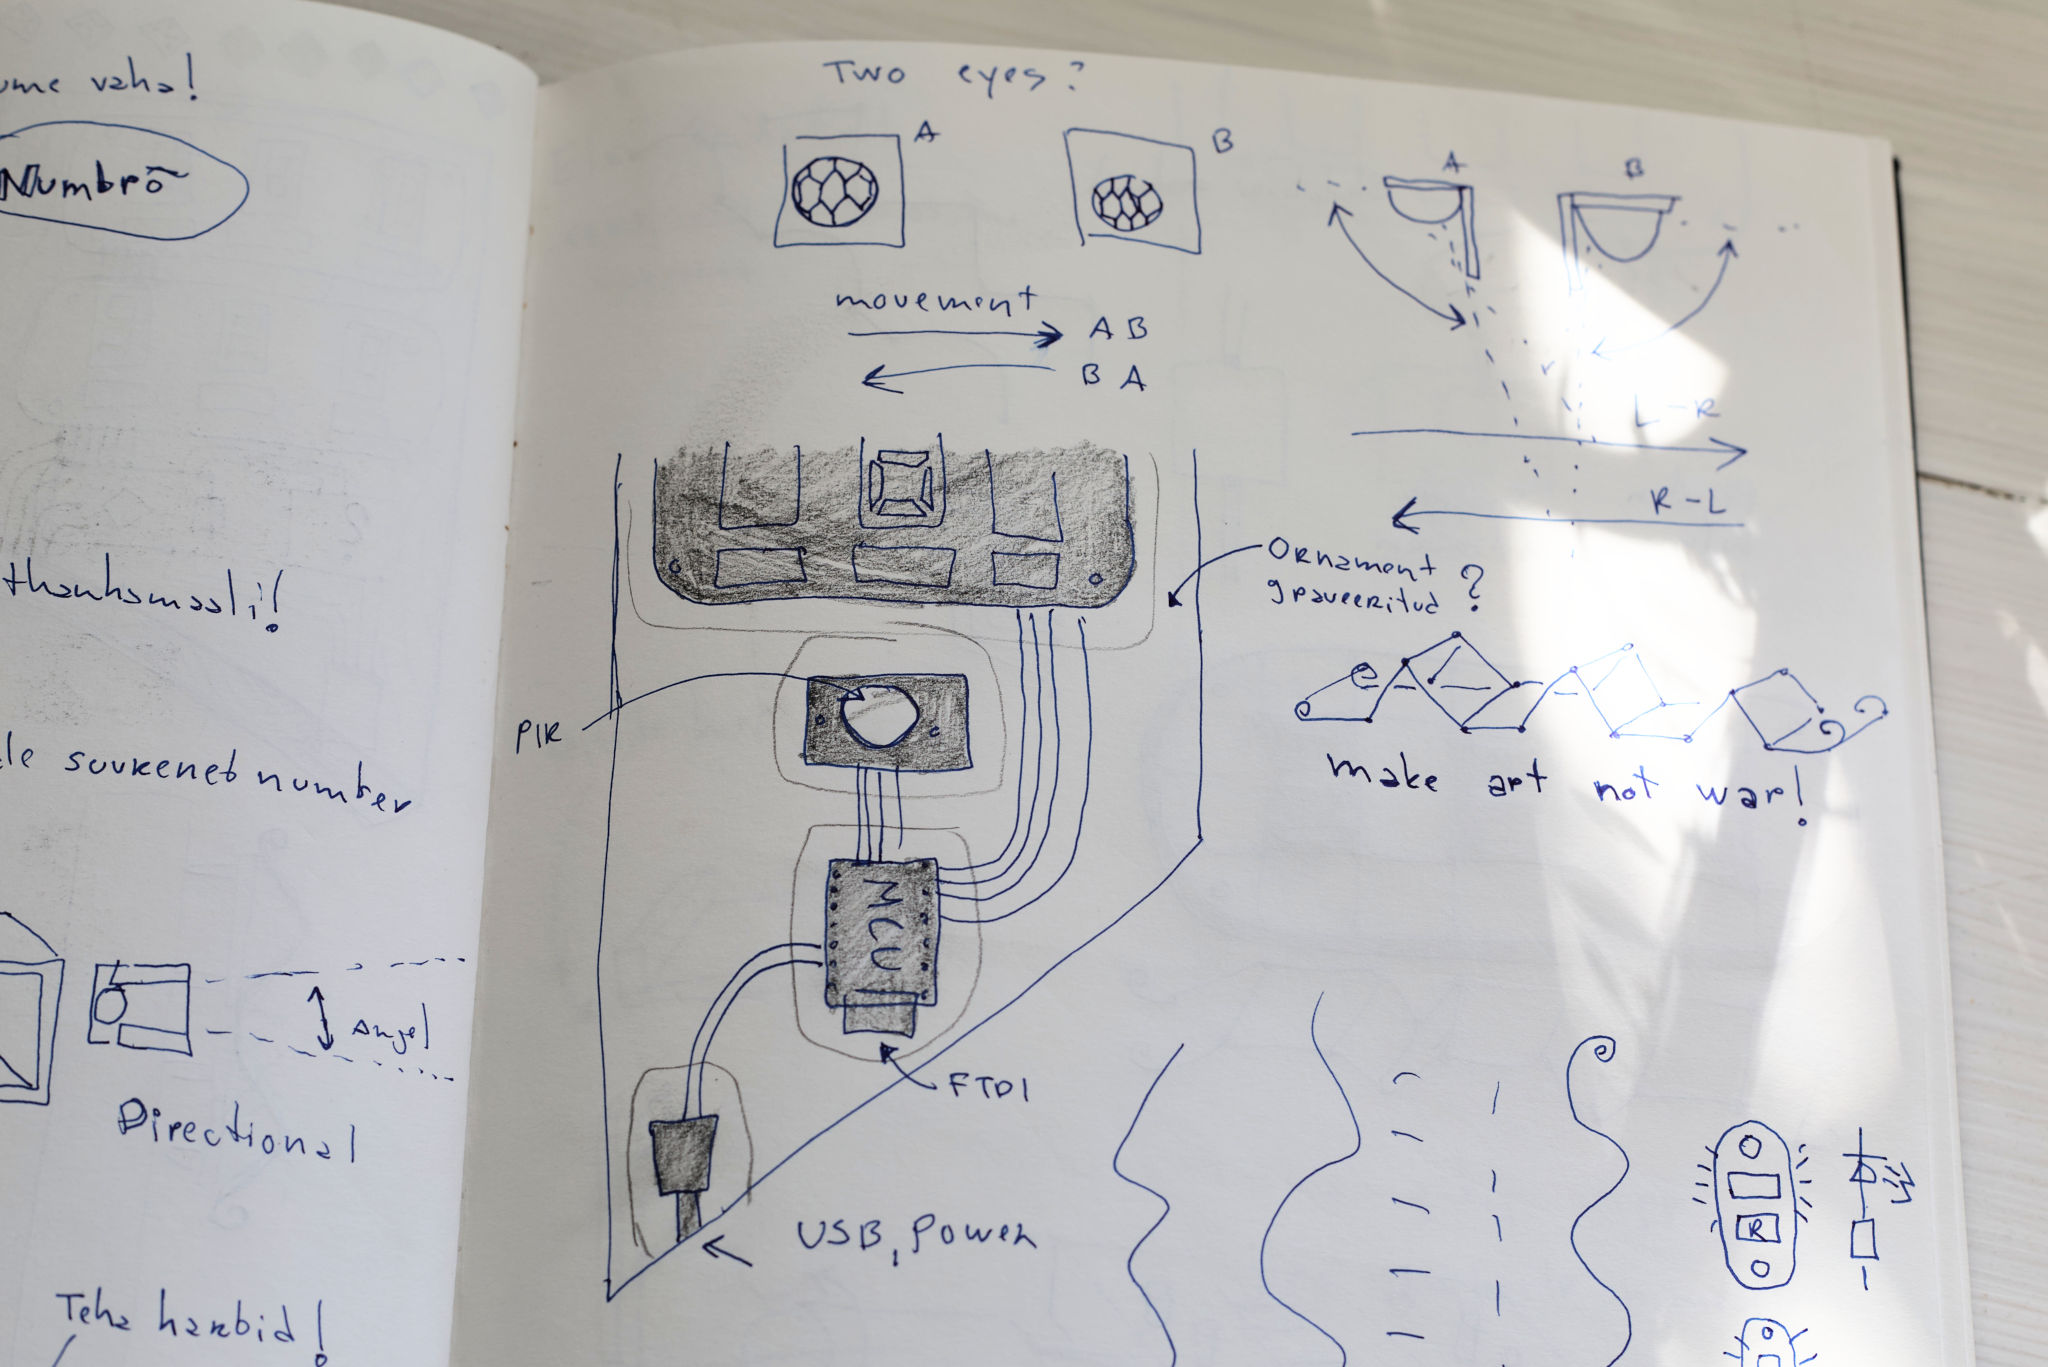 vaha!
Numbrõ
suurened number
Angel
Directional
Teha karbid!
Two eyes?
A
B
A
B
movement
A B
B A
L-R
R-L
Ornament
graveeritud?
PIR
make art not war!
MCU
FTDI
USB, Power
R